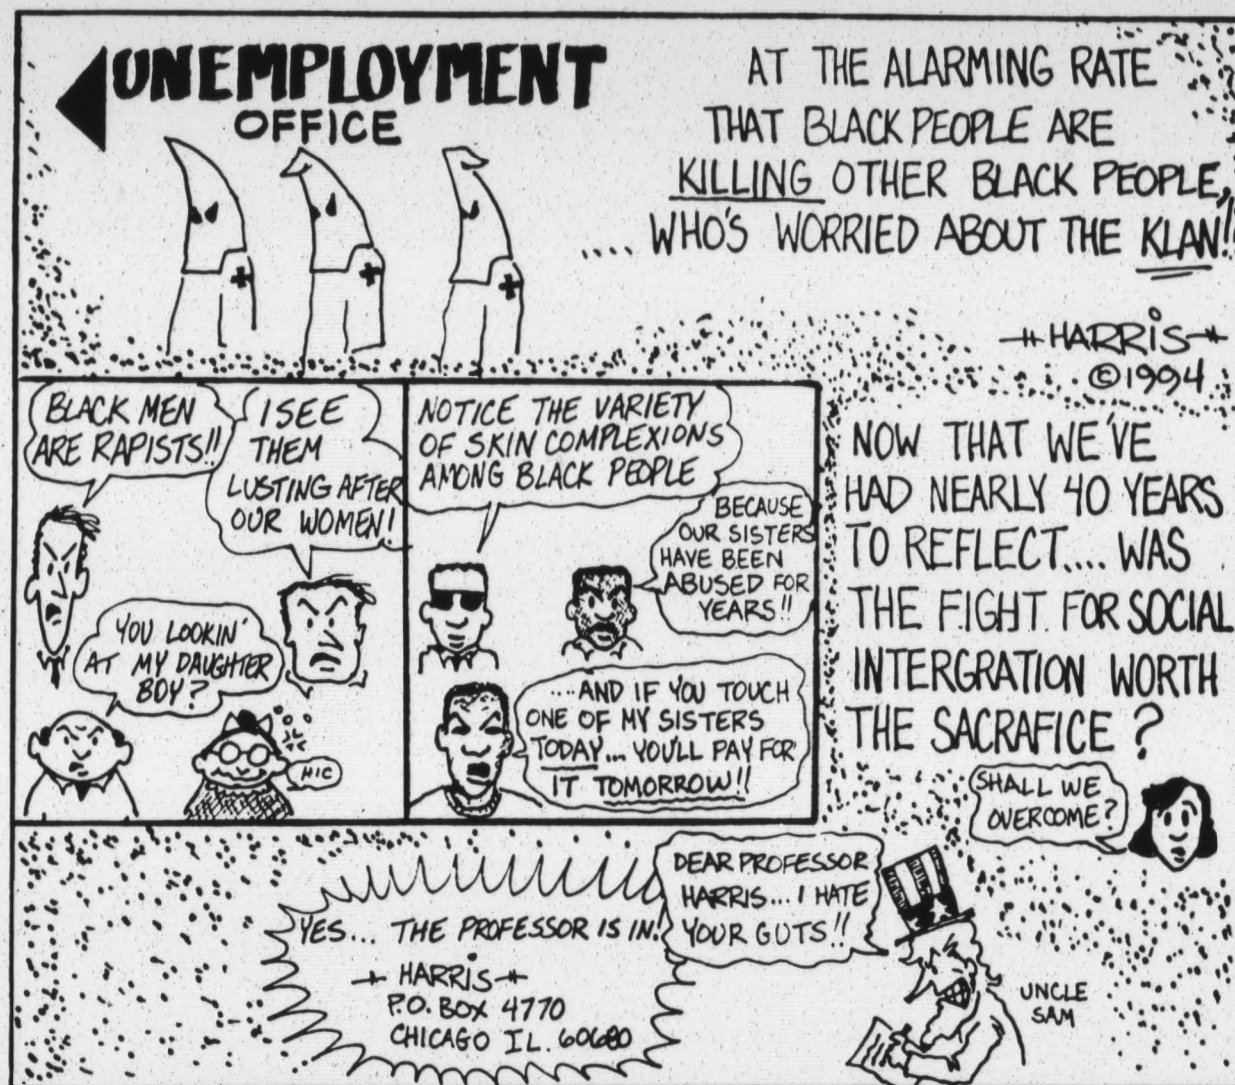 UNEMPLOYMENT
OFFICE
AT THE ALARMING RATE
THAT BLACK PEOPLE ARE
KILLING OTHER BLACK PEOPLE,
.... WHO'S WORRIED ABOUT THE KLAN!!
HARRIS
©1994
BLACK MEN
ARE RAPISTS!!
I SEE
THEM
LUSTING AFTER
OUR WOMEN!
YOU LOOKIN'
AT MY DAUGHTER
BOY?
HIC
NOTICE THE VARIETY
OF SKIN COMPLEXIONS
AMONG BLACK PEOPLE
BECAUSE
OUR SISTERS
HAVE BEEN
ABUSED FOR
YEARS!!
....AND IF YOU TOUCH
ONE OF MY SISTERS
TODAY... YOU'LL PAY FOR
IT TOMORROW!!
NOW THAT WE'VE
HAD NEARLY 40 YEARS
TO REFLECT.... WAS
THE FIGHT FOR SOCIAL
INTERGRATION WORTH
THE SACRAFICE?
SHALL WE
OVERCOME?
YES... THE PROFESSOR IS IN!
HARRIS
P.O. BOX 4770
CHICAGO IL. 60680
DEAR PROFESSOR
HARRIS... I HATE
YOUR GUTS!!
UNCLE
SAM